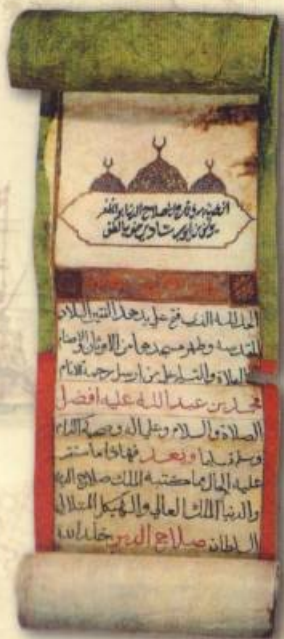 الحمد لله الذي فتح على يد هذا الفقير البلاد
المقدسه وطهر مسجدها من الاوثان والاصنام
الصلاة والسلام على من ارسل رحمة للانام
محمد بن عبد الله عليه افضل
الصلاة والسلام وعلى اله وصحبه الكرام
وسلم تسليما وبعد فهذا ما استقر
عليه الحال مما كتبه الملك صلاح الدين
والدنيا الملك العالي والهيكل المتلالي
السلطان صلاح الدين خلد الله